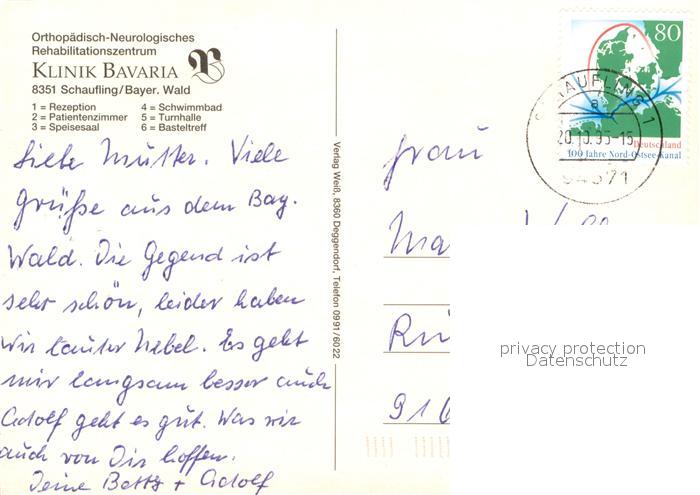 Orthopädisch-Neurologisches
Rehabilitationszentrum
KLINIK BAVARIA
8351 Schaufling/Bayer. Wald
1 = Rezeption 4 = Schwimmbad
2 = Patientenzimmer 5 = Turnhalle
3 = Speisesaal 6 = Basteltreff
Liebe Mutter. Viele
Grüße aus dem Bay.
Wald. Die Gegend ist
sehr schön, leider haben
wir lauter Nebel. Es geht
mir langsam besser auch
Adolf geht es gut. Was wir
auch von Dir hoffen.
Deine Betty + Adolf
Verlag Weiß, 8360 Deggendorf, Telefon 0991/6022
80
Deutschland
100 Jahre Nord-Ostsee-Kanal
SCHAUFLING 1
a
20.10.95-15
94571
Frau
Ma
Rü
916
privacy protection
Datenschutz